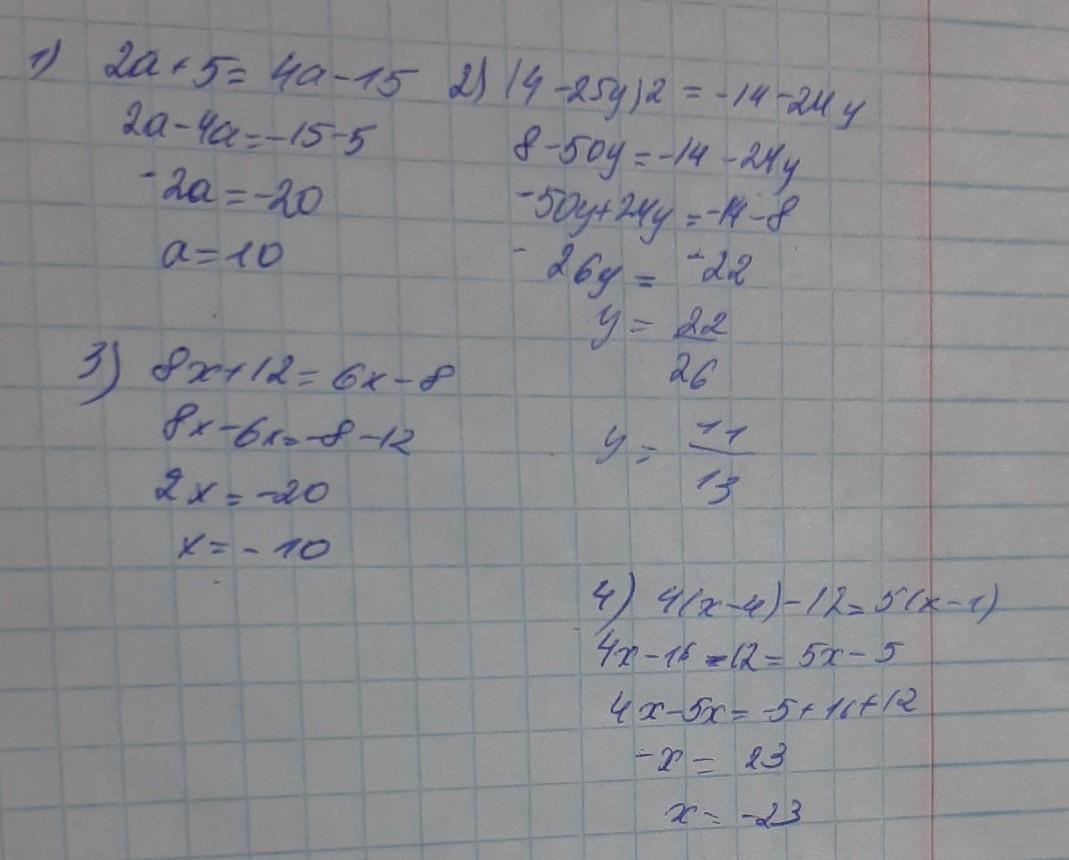 1) 2a + 5 = 4a - 15
2a - 4a = -15 - 5
-2a = -20
a = 10
2) (4 - 25y)2 = -14 - 24y
8 - 50y = -14 - 24y
-50y + 24y = -14 - 8
- 26y = -22
y = 22/26
y = 11/13
3) 8x + 12 = 6x - 8
8x - 6x = -8 - 12
2x = -20
x = - 10
4) 4(x - 4) - 12 = 5(x - 1)
4x - 16 - 12 = 5x - 5
4x - 5x = -5 + 16 + 12
-x = 23
x = -23